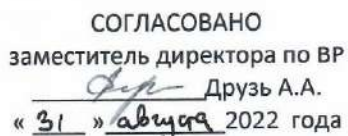 СОГЛАСОВАНО
заместитель директора по ВР
Друзь А.А.
« 31 » августа 2022 года